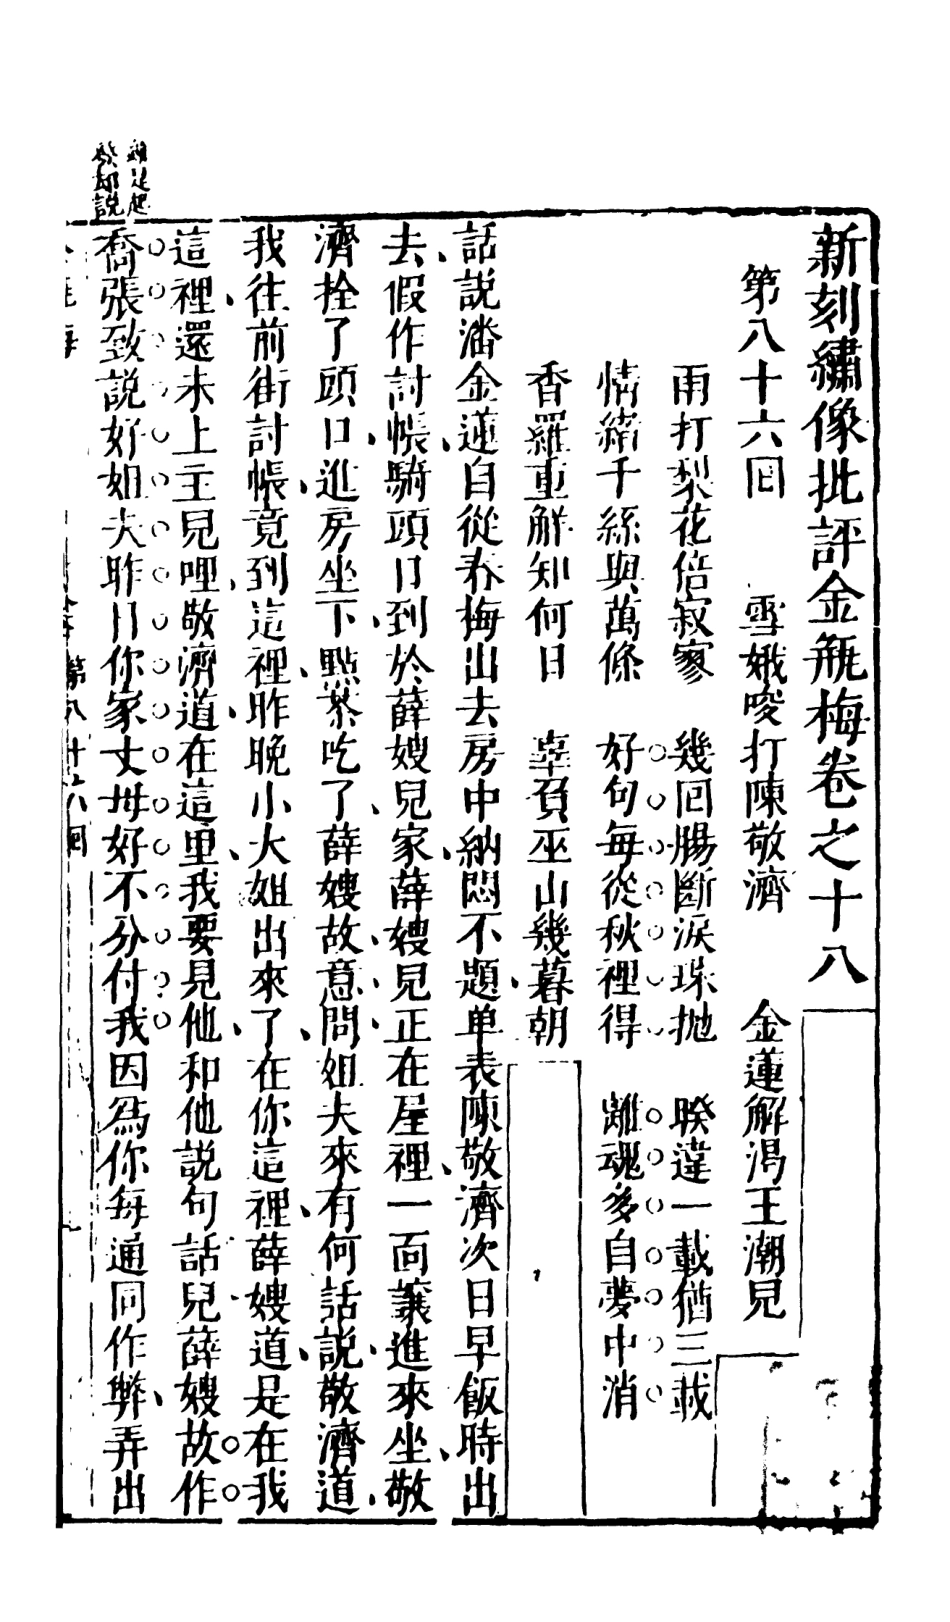 新刻繡像批評金瓶梅卷之十八
第八十六回　雪娥唆打陳敬濟　金蓮解渴王潮兒
雨打梨花倍寂寥　幾回腸斷淚珠拋　睽違一載猶三載
情緒千絲與萬條　好句每從秋裡得　離魂多自夢中消
香羅重解知何日　辜負巫山幾暮朝
話說潘金蓮自從春梅出去房中納悶不題单表陳敬濟次日早飯時出
去假作討帳騎頭口到於薛嫂兒家薛嫂兒正在屋裡一面讓進來坐敬
濟拴了頭口進房坐下點茶吃了薛嫂故意問姐夫來有何話說敬濟道
我往前街討帳竟到這裡昨晚小大姐出來了在你這裡薛嫂道是在我
這裡還未上主兒哩敬濟道在這里我要見他和他說句話兒薛嫂故作
喬張致說好姐夫昨日你家丈母好不分付我因爲你每通同作弊弄出
第八十六回